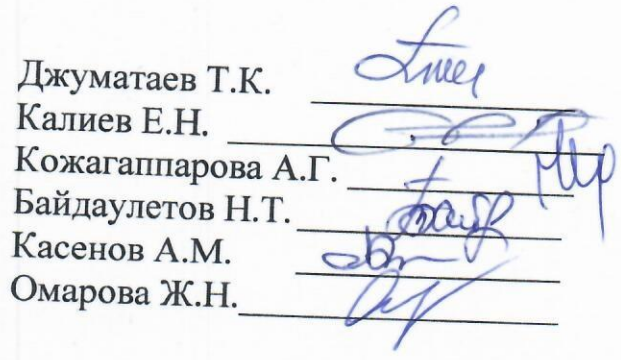 Джуматаев Т.К.
Калиев Е.Н.
Кожагаппарова А.Г.
Байдаулетов Н.Т.
Касенов А.М.
Омарова Ж.Н.